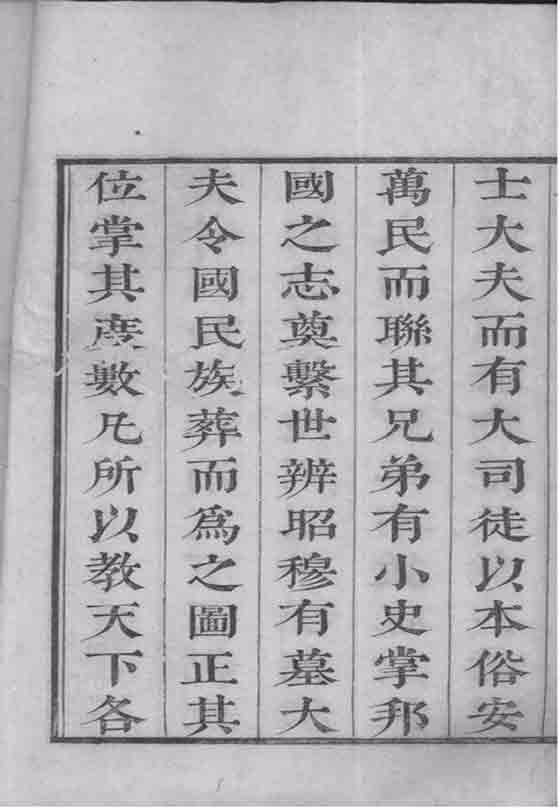 士大夫而有大司徒以本俗安
萬民而聯其兄弟有小史掌邦
國之志奠繫世辨昭穆有墓大
夫令國民族葬而爲之圖正其
位掌其度數凡所以教天下各